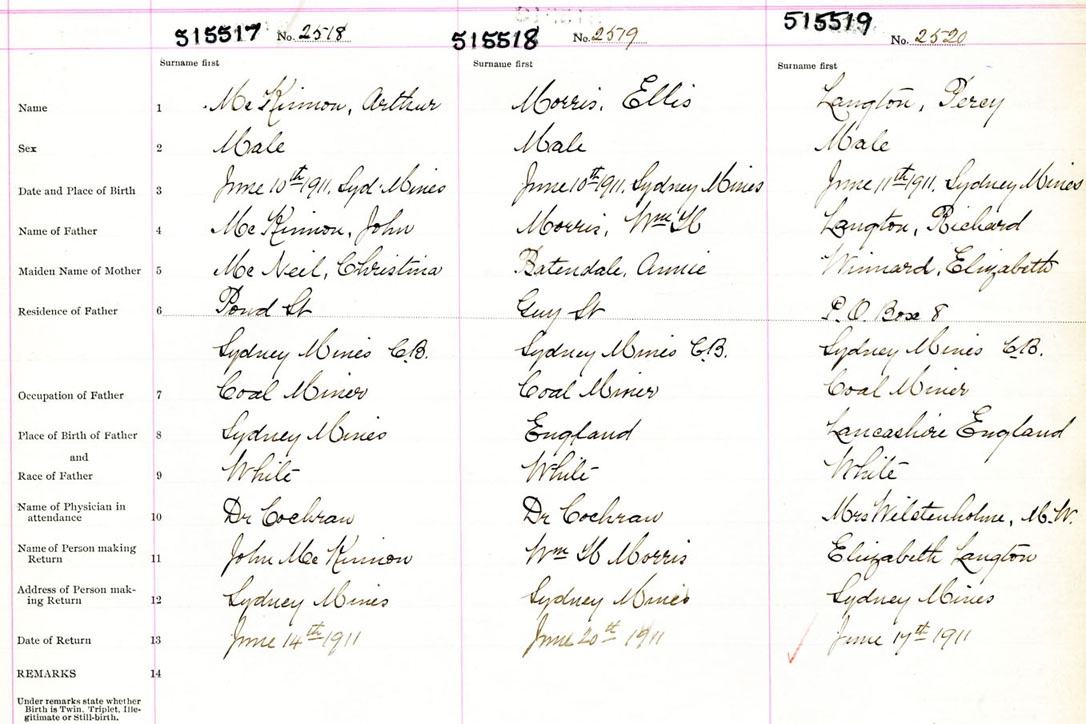 515517 No. 2518 515518 No. 2519 515519 No. 2520
Surname first Surname first Surname first
Name 1 Mc Kinnon, Arthur Morris, Ellis Langton, Percy
Sex 2 Male Male Male
Date and Place of Birth 3 June 10th 1911, Syd. Mines June 10th 1911, Sydney Mines June 11th 1911, Sydney Mines
Name of Father 4 Mc Kinnon, John Morris, Wm H Langton, Richard
Maiden Name of Mother 5 Mc Neil, Christina Batendale, Annie Winnard, Elizabeth
Residence of Father 6 Pond St Guy St P.O. Box 8
Sydney Mines C.B. Sydney Mines C.B. Sydney Mines C.B.
Occupation of Father 7 Coal Miner Coal Miner Coal Miner
Place of Birth of Father 8 Sydney Mines England Lancashire England
and
Race of Father 9 White White White
Name of Physician in
attendance 10 Dr Cochran Dr Cochran Mrs Wilstenholme, M.W.
Name of Person making
Return 11 John Mc Kinnon Wm H Morris Elizabeth Langton
Address of Person mak-
ing Return 12 Sydney Mines Sydney Mines Sydney Mines
Date of Return 13 June 14th 1911 June 20th 1911 June 17th 1911
REMARKS 14
Under remarks state whether
Birth is Twin, Triplet, Ille-
gitimate or Still-birth.